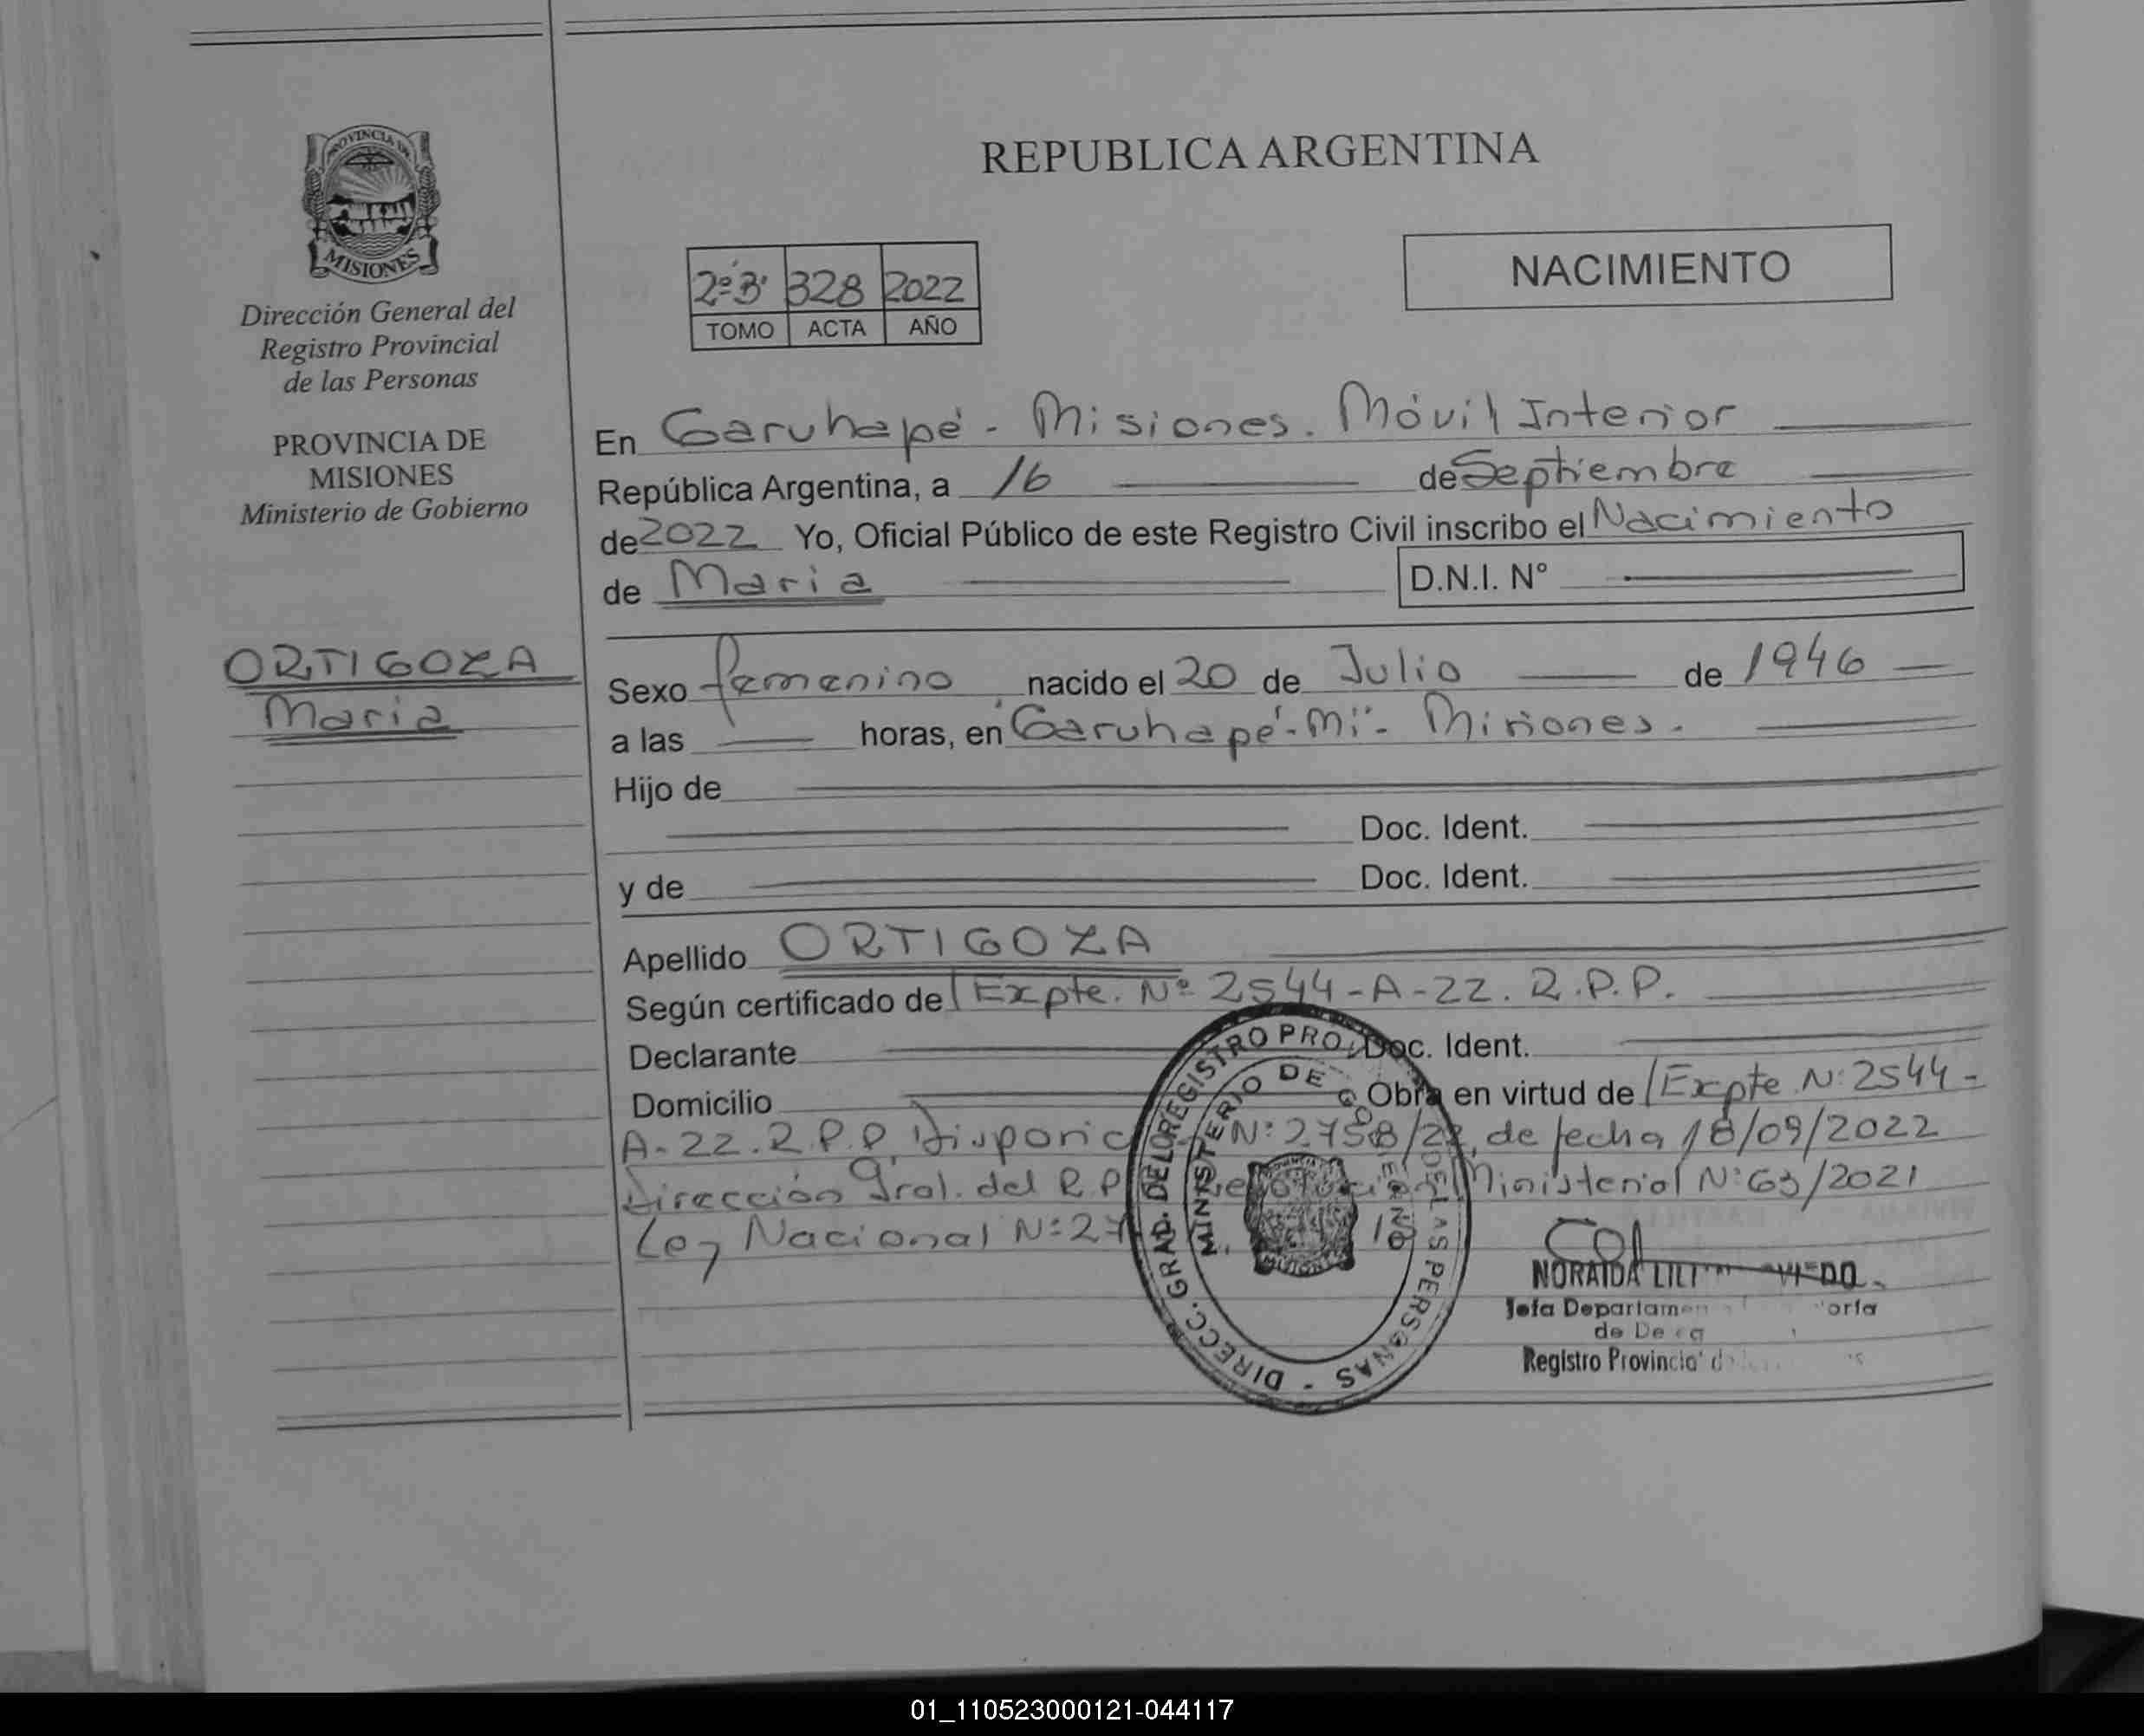 PROVINCIA DE
MISIONES
Dirección General del
Registro Provincial
de las Personas
PROVINCIA DE
MISIONES
Ministerio de Gobierno
ORTIGOZA
Maria
REPUBLICA ARGENTINA
2º3' 328 2022
TOMO ACTA AÑO
NACIMIENTO
En Garuhapé - Misiones. Móvil Interior
República Argentina, a 16 de Septiembre
de 2022 Yo, Oficial Público de este Registro Civil inscribo el Nacimiento
de Maria D.N.I. Nº
Sexo femenino nacido el 20 de Julio de 1946
a las horas, en Garuhapé-Mi- Misiones.
Hijo de
Doc. Ident.
y de Doc. Ident.
Apellido ORTIGOZA
Según certificado de Expte. Nº 2544-A-22. R.P.P.
Declarante Doc. Ident.
Domicilio Obra en virtud de Expte Nº 2544-
A-22. R.P.P. Nº 2758/22, de fecha 18/09/2022
Dirección Gral. del R.P. Ministerial Nº 63/2021
Ley Nacional Nº
DIRECC. GRAD. DEL REGISTRO PRO DE LAS PERSONAS -
MINISTERIO DE GOBIERNO
MISIONES
NORAIDA
Jefa
de
Registro Provincial
01_110523000121-044117